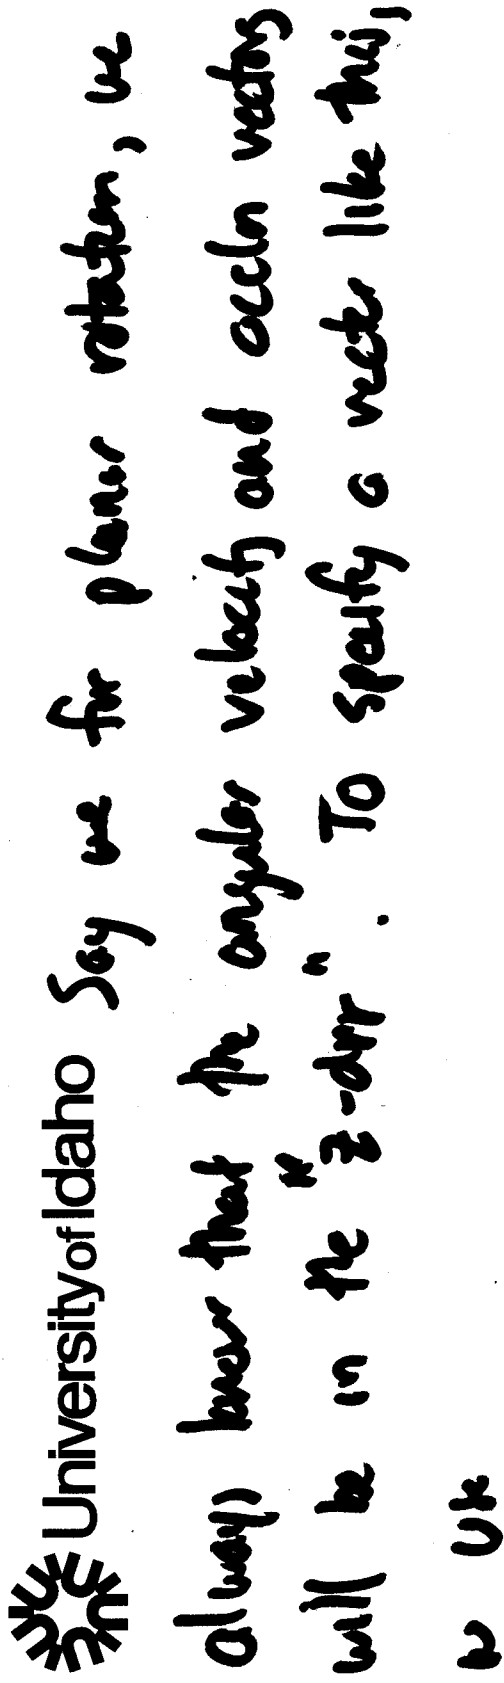 University of Idaho Say we for planar rotation, we
always know that the angular velocity and accln vectors
will be in the "z-dirr". To specify a vector like this,
w use